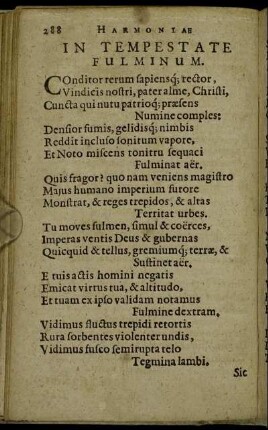 288 HARMONIAE
IN TEMPESTATE
FULMINUM.
COnditor rerum sapiensq́; rector,
Vindicis nostri, pater alme, Christi,
Cuncta qui nutu patrioq́; præsens
Numine comples:
Densior fumis, gelidisq́; nimbis
Reddit incluso sonitum vapore,
Et Noto miscens tonitru sequaci
Fulminat aër.
Quis fragor? quo nam veniens magistro
Majus humano imperium furore
Monstrat, & reges trepidos, & altas
Territat urbes.
Tu moves fulmen, simul & coërces,
Imperas ventis Deus & gubernas
Quicquid & tellus, gremiumq́; terræ, &
Sustinet aër.
E tuis actis homini negatis
Emicat virtus tua, & altitudo,
Et tuam ex ipso validam notamus
Fulmine dextram,
Vidimus fluctus trepidi retortis
Rura sorbentes violenter undis,
Vidimus fusco semirupta telo
Tegmina lambi,
Sic